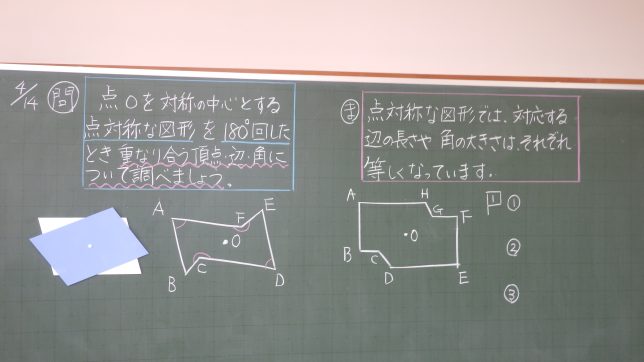 4/14
問
点Oを対称の中心とする
点対称な図形を180°回した
とき重なり合う頂点・辺・角に
ついて調べましょう。
ま
点対称な図形では、対応する
辺の長さや角の大きさは、それぞれ
等しくなっています。
A
B
C
D
E
F
O
A
B
C
D
E
F
G
H
O
1
①
②
③